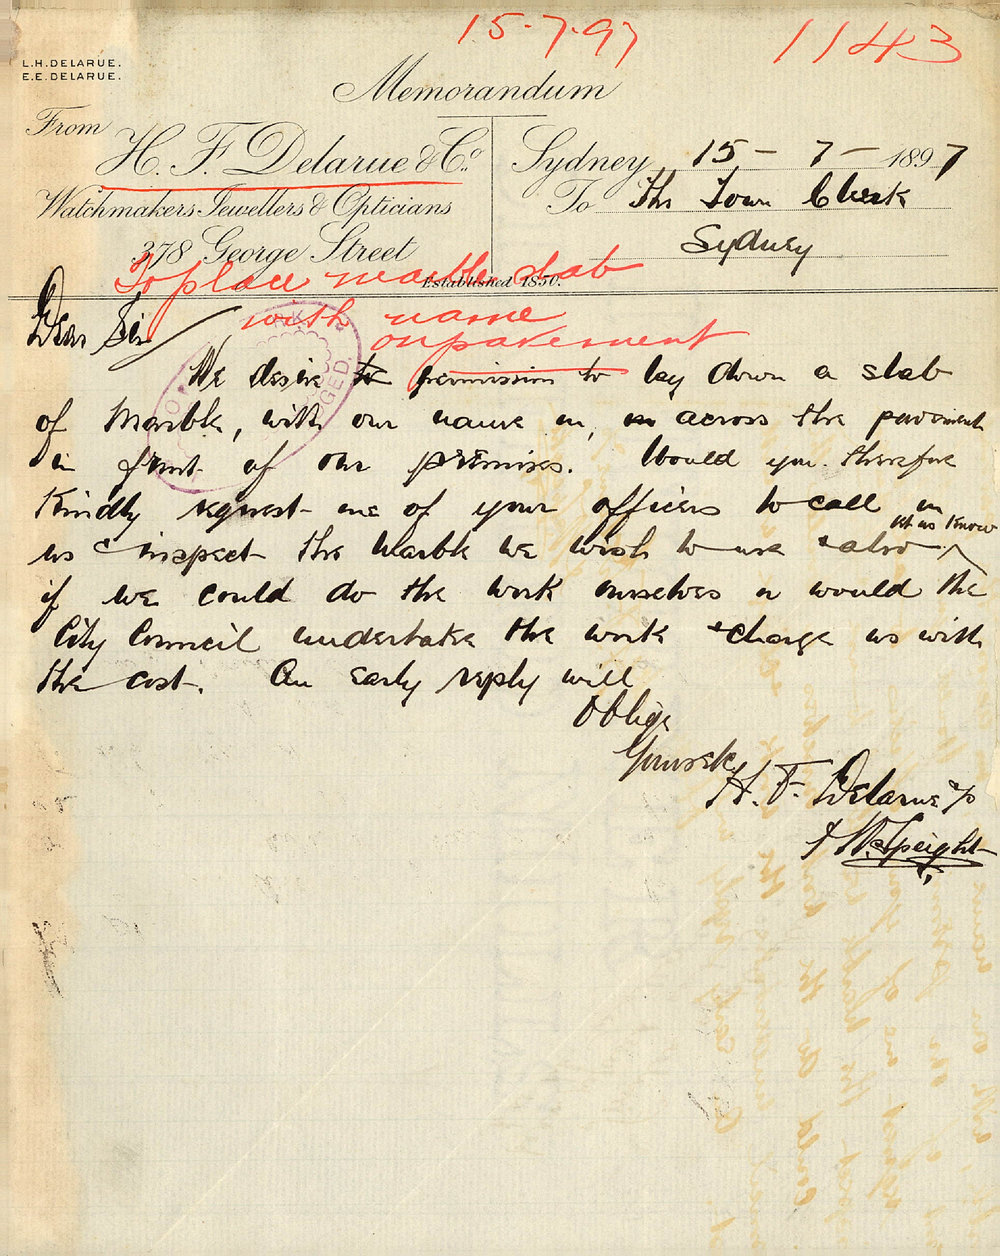 15-7-97
1143
L.H. DELARUE.
E.E. DELARUE.
Memorandum
From
H. F. Delarue & Co.
Watchmakers, Jewellers & Opticians
378 George Street
Established 1850.
Sydney 15 - 7 - 1897
To The Town Clerk
Sydney
To place marble slab
with name
on pavement
Dear Sir
We desire to permission to lay down a slab
of Marble, with our name in, in across the pavement
in front of our premises. Would you therefore
Kindly request one of your officers to call on
us & inspect the Marble we wish to use & also let us know
if we could do the work ourselves or would the
City Council undertake the work & charge us with
the cost. An early reply will
Oblige
Yours &c
H. F. Delarue & Co